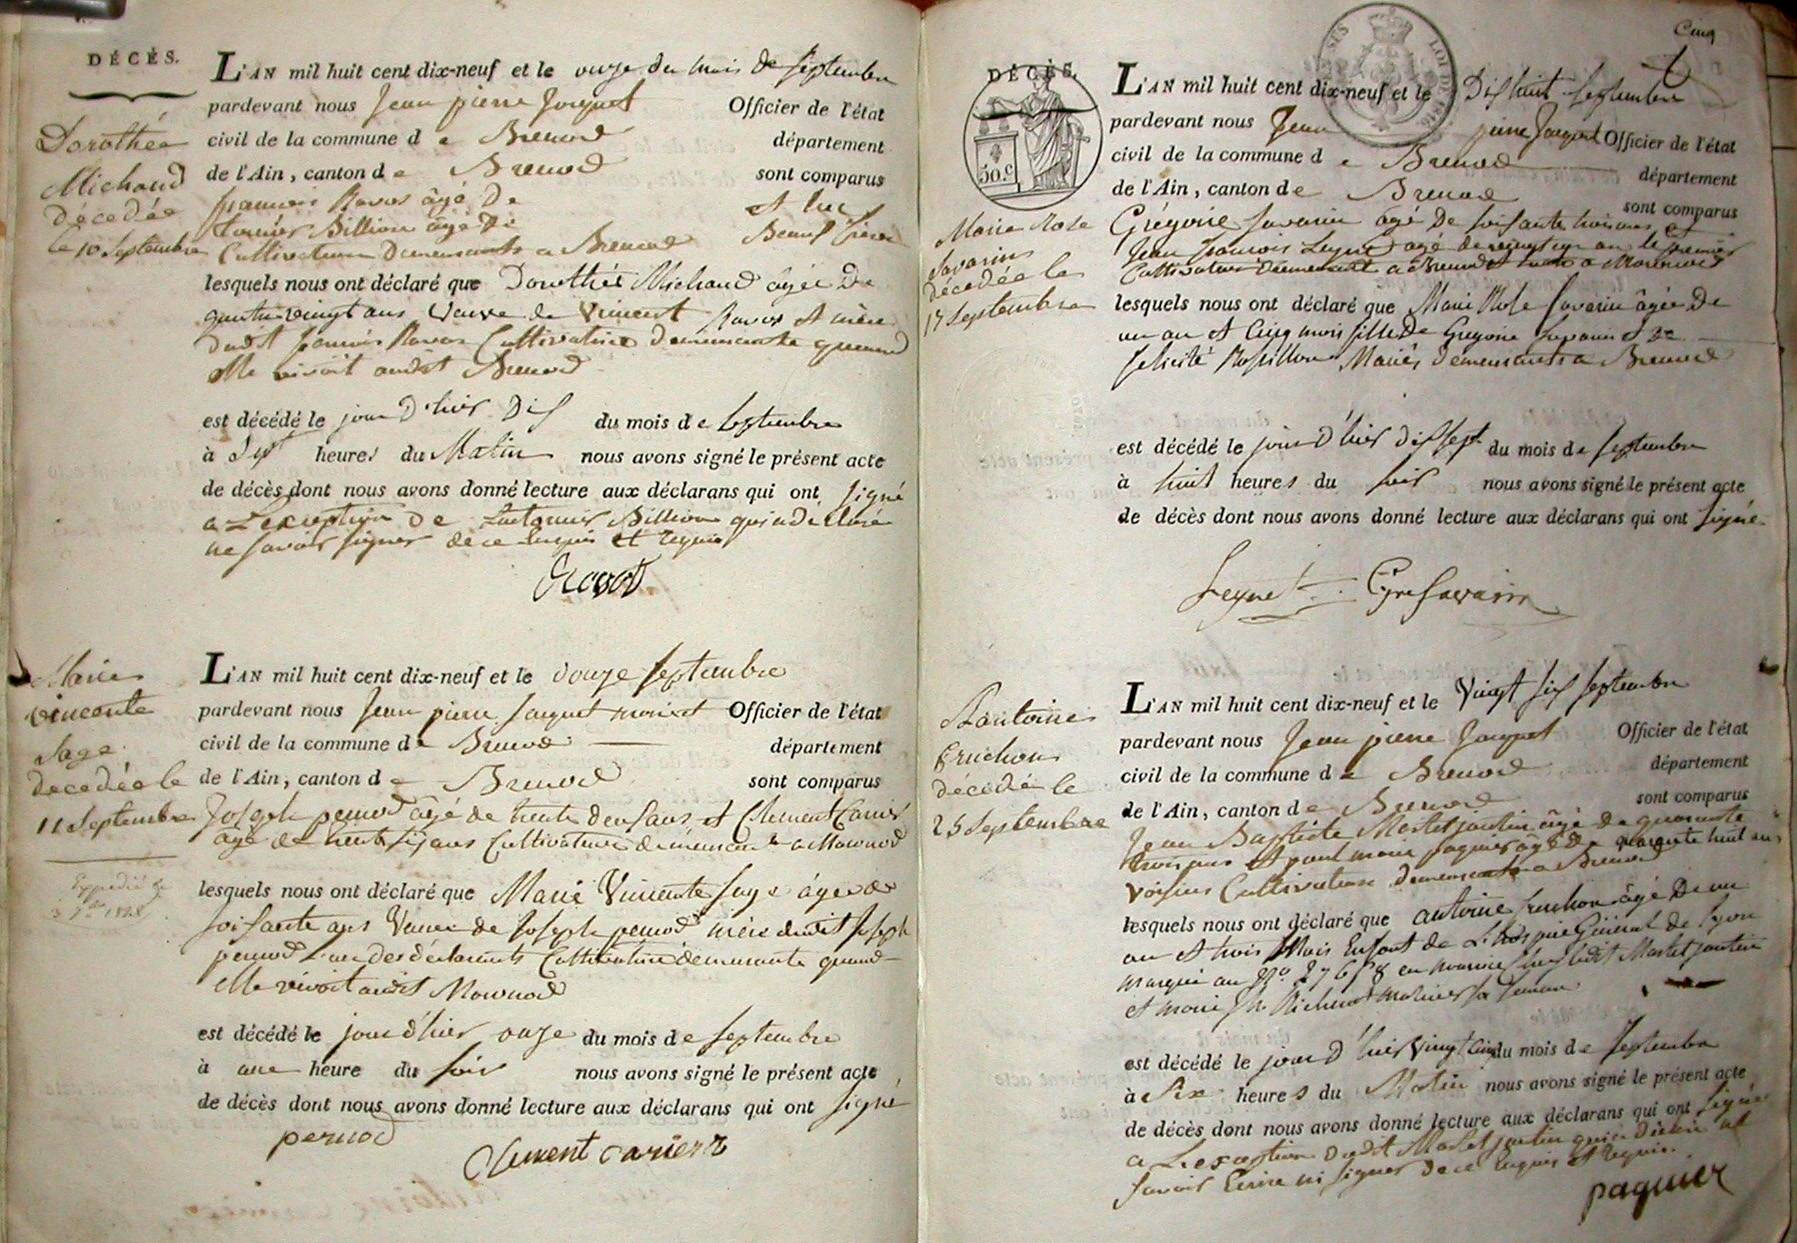 DÉCÈS.
L'AN mil huit cent dix-neuf et le onze du mois de Septembre
pardevant nous Jean pierre Jacquet Officier de l'état
civil de la commune d e Brenod département
de l'Ain, canton d e Brenod sont comparus
françois Ravot âgé de et Luc
Billion âgé de Beaux frères
Cultivateurs Demeurants a Brenod
lesquels nous ont déclaré que Dorothée Michaud âgée De
quatre vingt ans Veuve de Vincent Ravot et mère
dudit françois Ravot Cultivatrice Demeurante quand
elle vivoit audit Brenod
est décédé le jour d'hier Dix du mois d e Septembre
à Six heures du Matin nous avons signé le présent acte
de décès dont nous avons donné lecture aux déclarans qui ont signé
a L'exception de Billion qui a déclaré
ne savoir signer de ce enquis et requis
Ravot
Dorothée
Michaud
décedée
le 10 Septembre
L'AN mil huit cent dix-neuf et le douze Septembre
pardevant nous Jean pierre Jacquet Officier de l'état
civil de la commune d e Brenod département
de l'Ain, canton d e Brenod sont comparus
Joseph pernod âgé de trente deux ans et Clement Carrier
âgé de trente six ans Cultivateurs demeurants a
lesquels nous ont déclaré que Marie Vincente Sage âgée de
soixante ans Veuve de Joseph pernod mère dudit Joseph
pernod l'un des déclarants Cultivatrice demeurante quand
elle vivoit audit
est décédé le jour d'hier onze du mois d e Septembre
à une heure du soir nous avons signé le présent acte
de décès dont nous avons donné lecture aux déclarans qui ont signé
pernod
Clement Carrier
Marie
vincente
Sage
décedée le
11 Septembre
Expedié le
1828
Cinq
DÉCÈS.
50.C
L'AN mil huit cent dix-neuf et le Dix huit Septembre
pardevant nous Jean pierre Jacquet Officier de l'état
civil de la commune d e Brenod département
de l'Ain, canton d e Brenod sont comparus
Grégoire Savarin âgé De soixante trois ans et
Jean françois Leynet âgé de vingt six ans le premier
Cultivateur demeurant a Brenod
lesquels nous ont déclaré que Marie Rose Savarin âgée De
un an et Cinq mois fille De Gregoire Savarin et De
felicité Rossillon Mariés demeurants a Brenod
est décédé le jour d'hier dix sept du mois d e Septembre
à huit heures du soir nous avons signé le présent acte
de décès dont nous avons donné lecture aux déclarans qui ont signé
Leynet Gre Savarin
Marie Rose
Savarin
décedée le
17 Septembre
L'AN mil huit cent dix-neuf et le Vingt six Septembre
pardevant nous Jean pierre Jacquet Officier de l'état
civil de la commune d e Brenod département
de l'Ain, canton d e Brenod sont comparus
Jean Baptiste Martet jantin âgé de quarante
trois ans et paul marie paquier âgé de quarante huit ans
voisins Cultivateurs demeurants a Brenod
lesquels nous ont déclaré que antoine fruchon âgé De un
an et trois Mois Enfant de L'hospice Général de Lyon
marqué au N.º en nourrice chez ledit Martet jantin
et marie sa femme
est décédé le jour d'hier Vingt Cinq du mois d e Septembre
à Six heures du Matin nous avons signé le présent acte
de décès dont nous avons donné lecture aux déclarans qui ont signé
a L'exception dudit Martet jantin qui a déclaré ne
savoir Ecrire ni signer de ce Enquis et requis.
paquier
antoine
fruchon
décédé le
25 Septembre